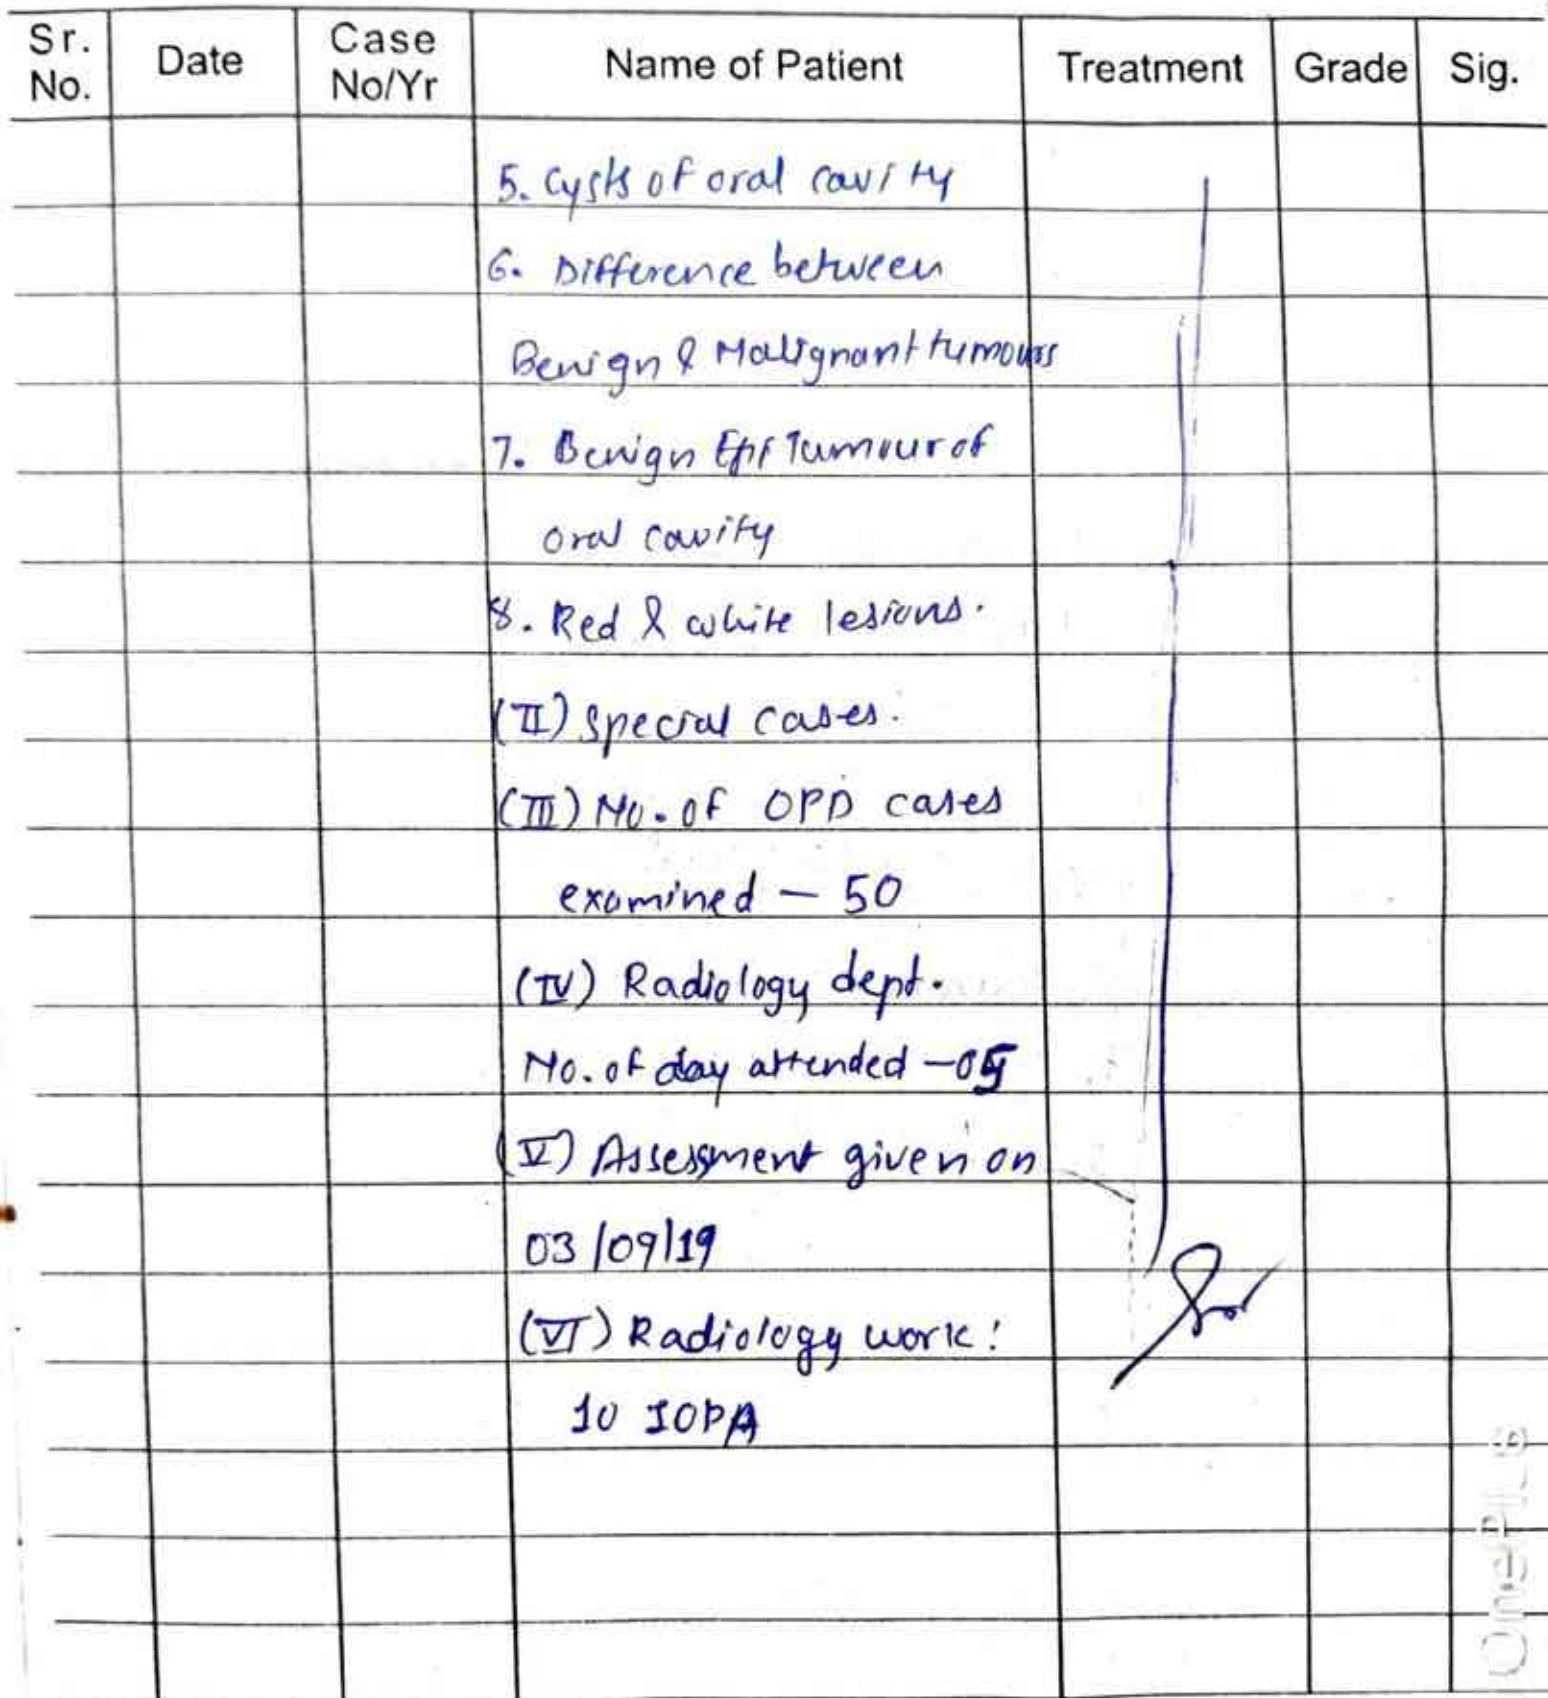 Sr. No. Date Case No/Yr Name of Patient Treatment Grade Sig.
5. Cysts of oral cavity
6. Difference between
Benign & Malignant tumours
7. Benign Epi Tumour of
oral cavity
8. Red & white lesions.
(II) Special cases.
(III) No. of OPD cases
examined - 50
(IV) Radiology dept.
No. of day attended - 05
(V) Assessment given on
03/09/19
(VI) Radiology work:
10 IOPA
OnePlus